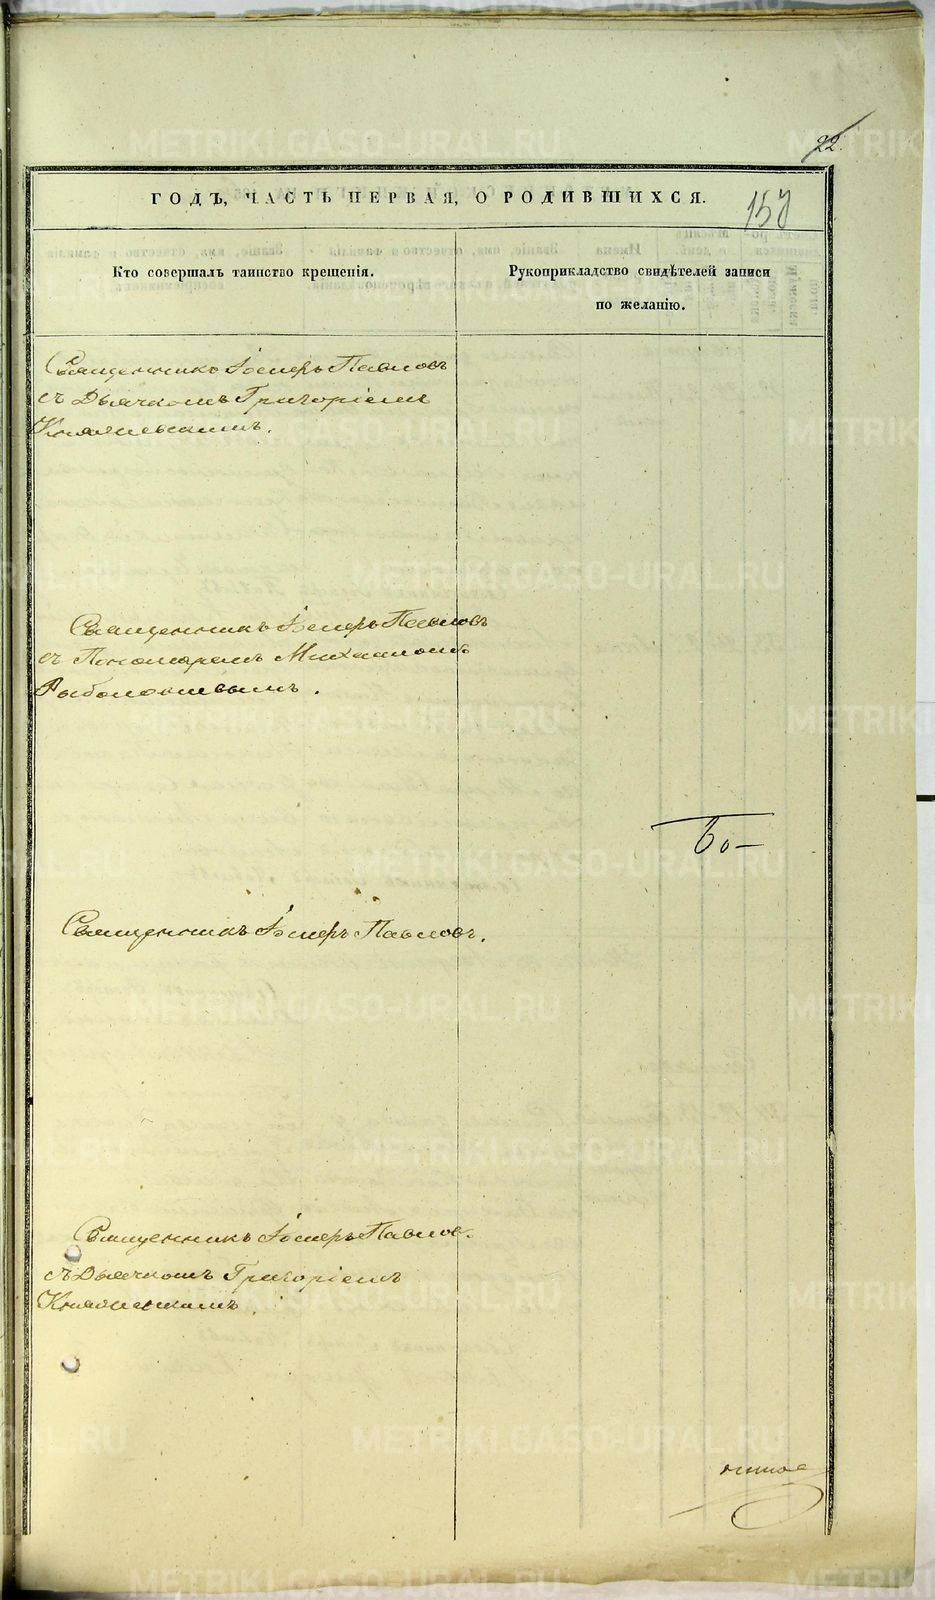 22.
ГОДЪ, ЧАСТЬ ПЕРВАЯ, О РОДИВШИХСЯ.
157
Кто совершалъ таинство крещенія.
Рукоприкладство свидѣтелей записи
по желанію.
Священникъ Іосифъ Павловъ
съ Дьячкомъ Григоріемъ
Княжевскимъ.
Священникъ Іосифъ Павловъ
съ Пономаремъ Михаиломъ
Священникъ Іосифъ Павловъ.
Священникъ Іосифъ Павловъ
съ Дьячкомъ Григоріемъ
Княжевскимъ.
METRIKI.GASO-URAL.RU